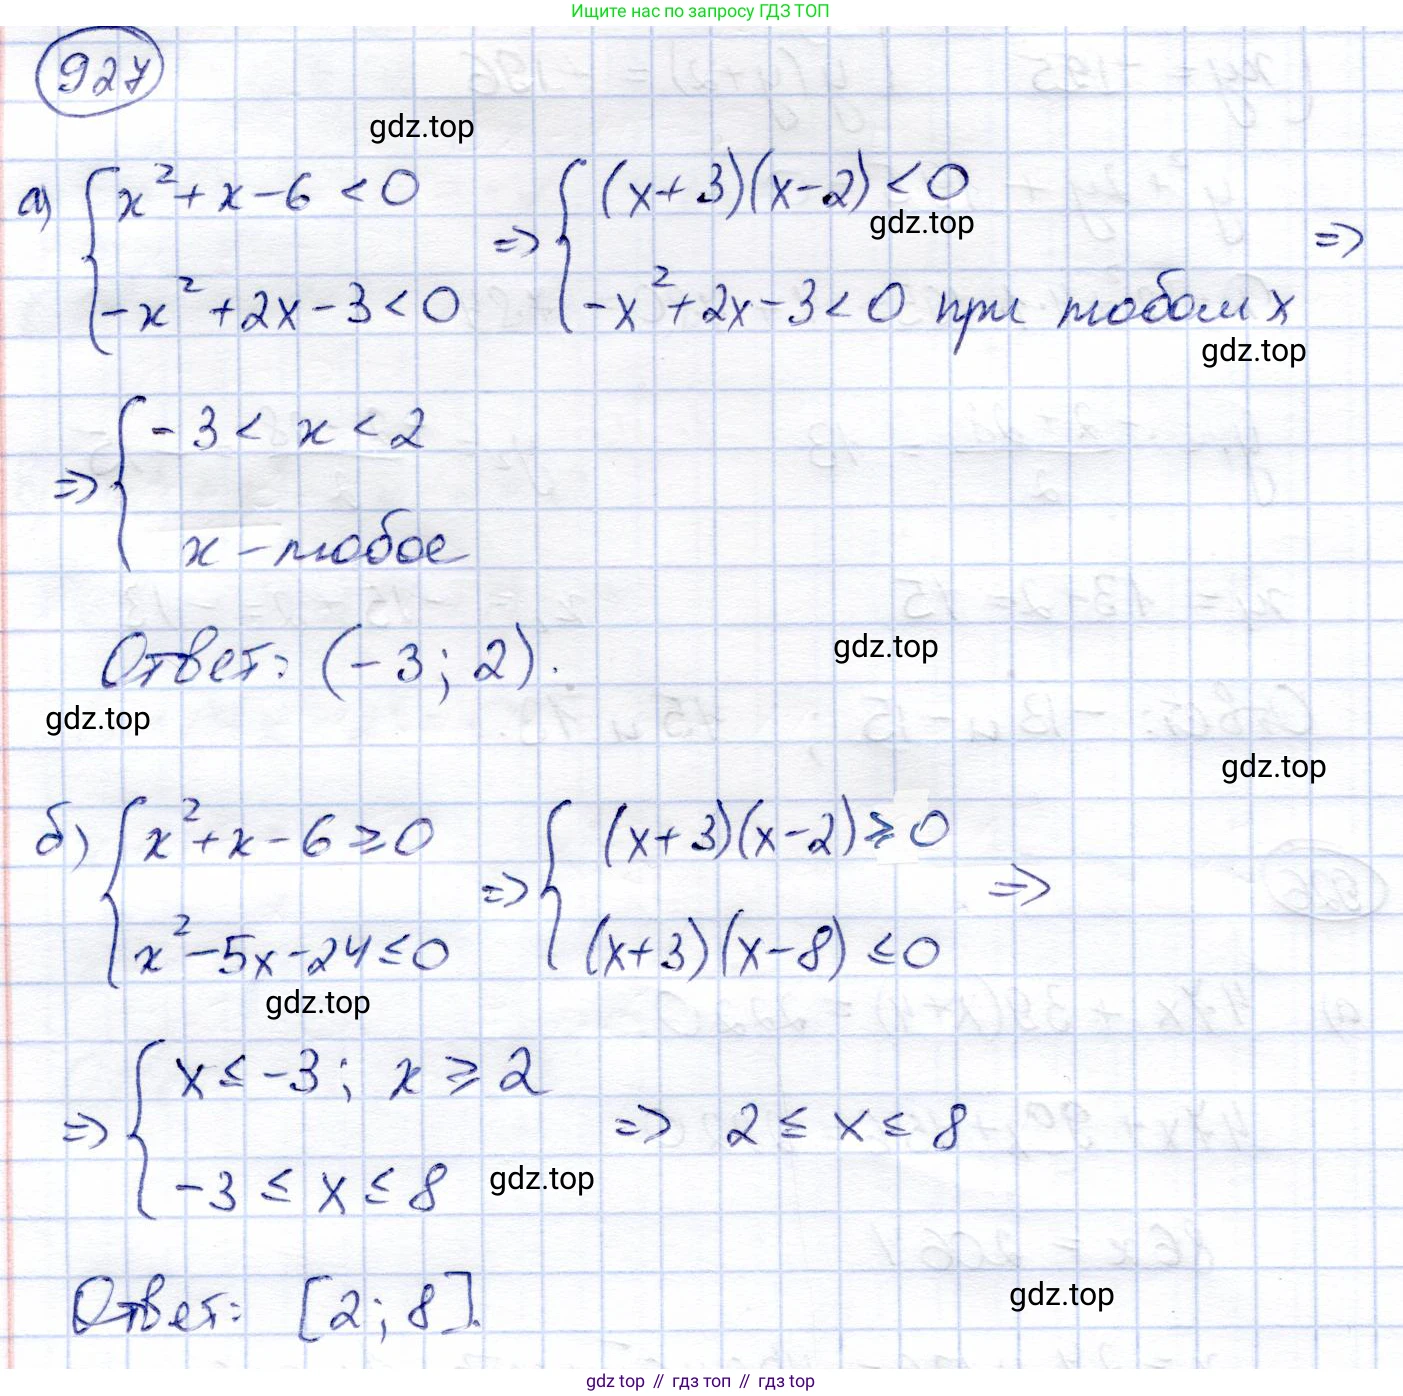 Ищите нас по запросу ГДЗ ТОП
927
gdz.top
а) { x² + x - 6 < 0 => { (x+3)(x-2) < 0
gdz.top
=>
-x² + 2x - 3 < 0 -x² + 2x - 3 < 0 при любом x
gdz.top
=> { -3 < x < 2
x - любое
Ответ: (-3; 2).
gdz.top
gdz.top
gdz.top
б) { x² + x - 6 ≥ 0 => { (x+3)(x-2) ≥ 0 =>
x² - 5x - 24 ≤ 0 (x+3)(x-8) ≤ 0
gdz.top
=> { x ≤ -3; x ≥ 2 => 2 ≤ x ≤ 8
-3 ≤ x ≤ 8
gdz.top
Ответ: [2; 8].
gdz.top
gdz top // гдз топ // гдз top